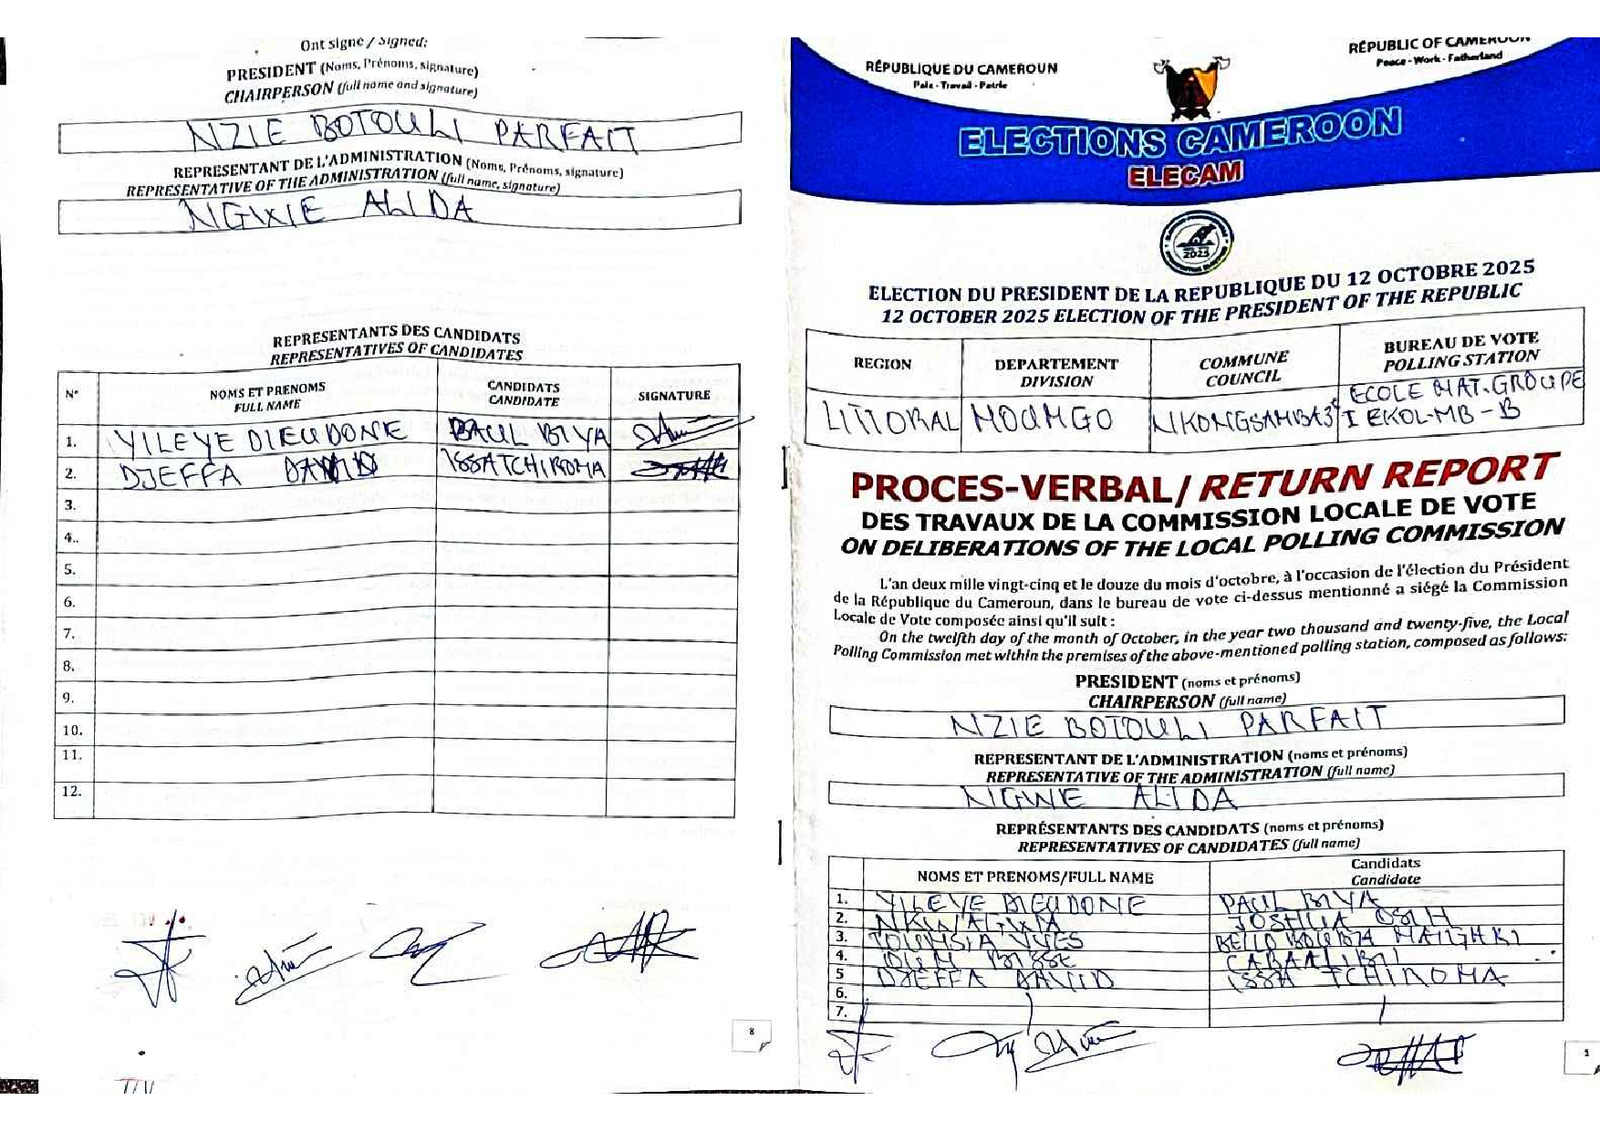 Ont signé / Signed:
PRESIDENT (Noms, Prénoms, signature)
CHAIRPERSON (full name and signature)
NZIE BOTOULI PARFAIT
REPRESENTANT DE L'ADMINISTRATION (Noms, Prénoms, signature)
REPRESENTATIVE OF THE ADMINISTRATION (full name, signature)
NGWIE ALIDA
REPRESENTANTS DES CANDIDATS
REPRESENTATIVES OF CANDIDATES
N° NOMS ET PRENOMS FULL NAME CANDIDATS CANDIDATE SIGNATURE
1. YILEYE DIEUDONE PAUL BIYA
2. DJEFFA DAVID ISSA TCHIROMA
3.
4..
5.
6.
7.
8.
9.
10.
11.
12.
8
RÉPUBLIQUE DU CAMEROUN
Paix - Travail - Patrie
RÉPUBLIC OF CAMEROON
Peace - Work - Fatherland
ELECTIONS CAMEROON
ELECAM
2025
ELECTION DU PRESIDENT DE LA REPUBLIQUE DU 12 OCTOBRE 2025
12 OCTOBER 2025 ELECTION OF THE PRESIDENT OF THE REPUBLIC
REGION DEPARTEMENT DIVISION COMMUNE COUNCIL BUREAU DE VOTE POLLING STATION
LITTORAL MOUNGO NKONGSAMBA 3e ECOLE MAT. GROUPE I EKOL-MB-B
PROCES-VERBAL/ RETURN REPORT
DES TRAVAUX DE LA COMMISSION LOCALE DE VOTE
ON DELIBERATIONS OF THE LOCAL POLLING COMMISSION
L'an deux mille vingt-cinq et le douze du mois d'octobre, à l'occasion de l'élection du Président
de la République du Cameroun, dans le bureau de vote ci-dessus mentionné a siégé la Commission
Locale de Vote composée ainsi qu'il suit :
On the twelfth day of the month of October, in the year two thousand and twenty-five, the Local
Polling Commission met within the premises of the above-mentioned polling station, composed as follows:
PRESIDENT (noms et prénoms)
CHAIRPERSON (full name)
NZIE BOTOULI PARFAIT
REPRESENTANT DE L'ADMINISTRATION (noms et prénoms)
REPRESENTATIVE OF THE ADMINISTRATION (full name)
NGWIE ALIDA
REPRÉSENTANTS DES CANDIDATS (noms et prénoms)
REPRESENTATIVES OF CANDIDATES (full name)
NOMS ET PRENOMS/FULL NAME Candidats Candidate
1. YILEYE DIEUDONE PAUL BIYA
2. JOSHUA OSIH
3. TOUMSIA YVES BELLO BOUBA MAIGARI
4. CABRAL LIBII
5 DJEFFA DAVID ISSA TCHIROMA
6.
7.
1